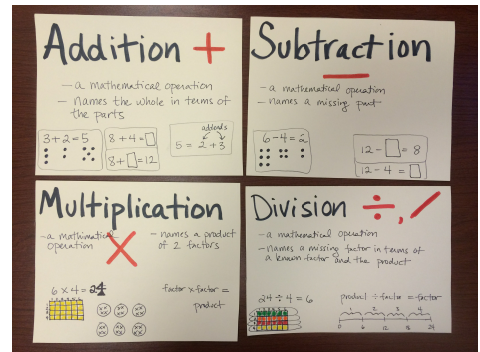 Addition +
- a mathematical operation
- names the whole in terms of
the parts
3 + 2 = 5
8 + 4 = □
8 + □ = 12
addends
5 = 2 + 3
Subtraction
—
- a mathematical operation
- names a missing part
6 - 4 = 2
12 - □ = 8
12 - 4 = □
Multiplication
×
- a mathimatical
operation
- names a product
of 2 factors
6 × 4 = 24
factor × factor =
product
Division ÷, /
- a mathematical operation
- names a missing factor in terms of
a known factor and the product
24 ÷ 4 = 6
product ÷ factor = factor
1 2 3 4
0 6 12 18 24